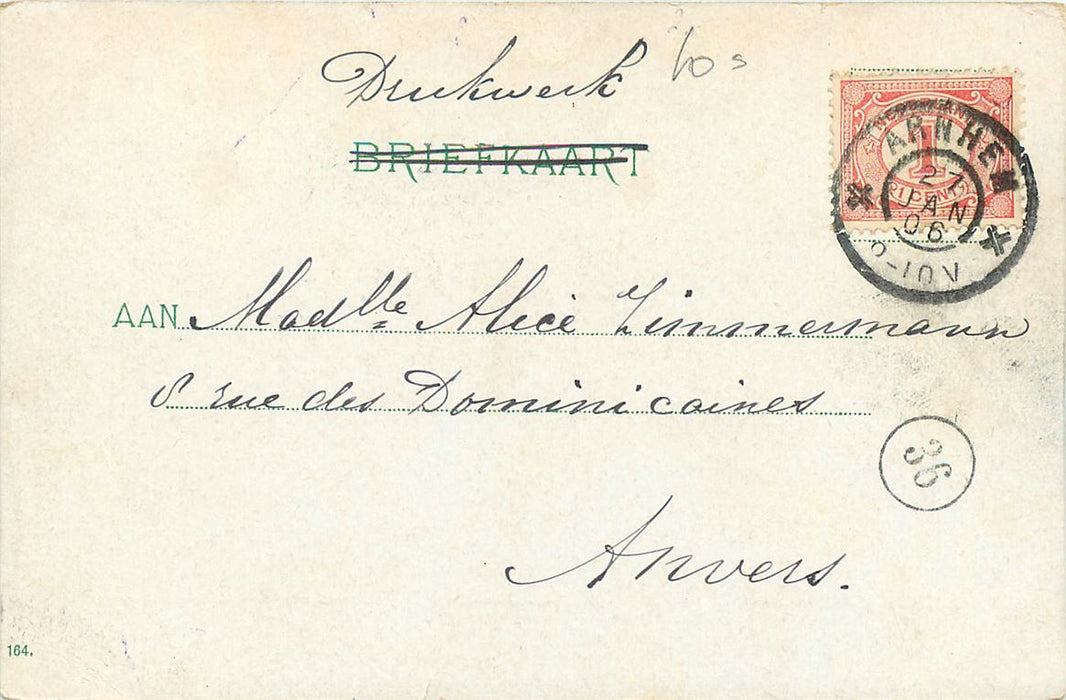 Drukwerk
BRIEFKAART
1
1 CENT
ARNHEM
27
JAN
06
8-10V
AAN Madlle Alice Zimmermann
8 rue des Dominicaines
36
Anvers.
164.